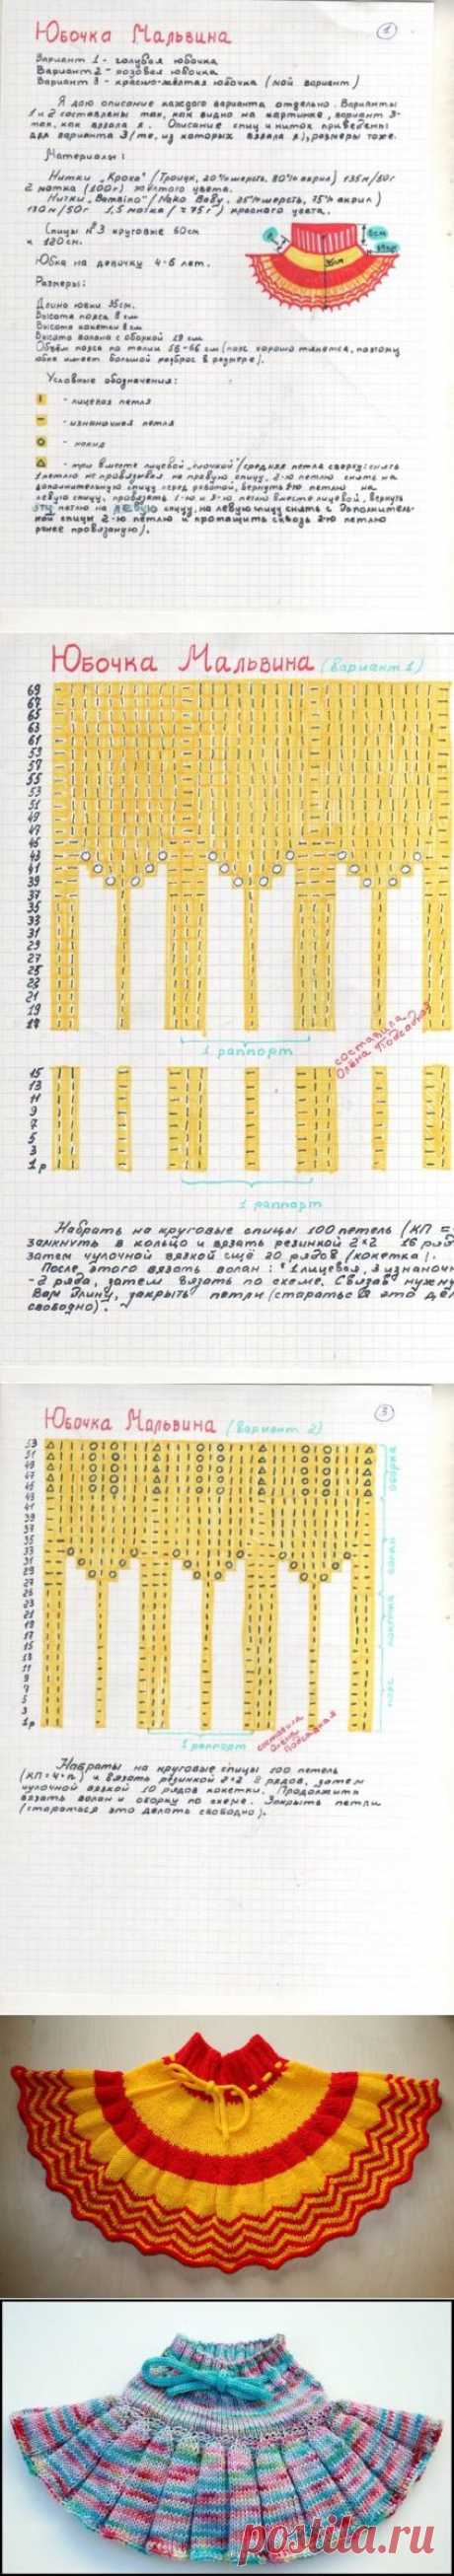 Юбочка Мальвина
1
Вариант 1 - голубая юбочка
Вариант 2 - розовая юбочка
Вариант 3 - красно-жёлтая юбочка (мой вариант)
Я даю описание каждого варианта отдельно. Варианты
1 и 2 составлены так, как видно на картинке, вариант 3-
так, как вязала я. Описание спиц и ниток приведены
для варианта 3 (те, из которых вязала я), размеры тоже.
Материалы:
Нитки "Кроха" (Троицк, 20% шерсть, 80% акрил) 135м/50г
2 мотка (100г) жёлтого цвета.
Нитки "Bambino" (Nako Baby, 25% шерсть, 75% акрил)
130м/50г 1,5 мотка (≈75г) красного цвета.
Спицы №3 круговые 60см
и 120см.
8см
35см
Юбка на девочку 4-6 лет.
Размеры:
Длина юбки 35см.
Высота пояса 8см
Высота кокетки 8см
Высота волана с оборкой 19см
Объём пояса по талии 56-66 см (пояс хорошо тянется, поэтому
юбка имеет большой разброс в размере).
Условные обозначения:
- лицевая петля
- изнаночная петля
- накид
- три вместе лицевой "ёлочкой" (средняя петля сверху: снять
1 петлю не провязывая на правую спицу, 2-ю петлю снять на
дополнительную спицу перед работой, вернуть 1-ю петлю на
левую спицу, провязать 1-ю и 3-ю петлю вместе лицевой, вернуть
эту петлю на левую спицу, на левую спицу снять с дополнитель-
ной спицы 2-ю петлю и протащить сквозь 2-ю петлю
ранее провязаную).
Юбочка Мальвина (вариант 1)
69
67
65
63
61
59
57
55
53
51
49
47
45
43
41
39
37
35
33
31
29
27
25
23
21
19
17
1 раппорт
составила
Олёна
15
13
11
9
7
5
3
1р
1 раппорт
Набрать на круговые спицы 100 петель (КП =
замкнуть в кольцо и вязать резинкой 2*2 16 ряд
затем чулочной вязкой ещё 20 рядов (кокетка).
После этого вязать волан: *1 лицевая, 3 изнаночн
-2 ряда, затем вязать по схеме. Связав нужну
Вам длину, закрыть петли (стараться это дел
свободно).
Юбочка Мальвина (вариант 2)
3
53
51
49
47
45
43
41
39
37
35
33
31
29
27
25
23
21
19
17
15
13
11
9
7
5
3
1р
оборка
волан
кокетка
пояс
1 раппорт
составила
Олёна
Набрать на круговые спицы 100 петель
(КП=4*n) и вязать резинкой 2*2 8 рядов, затем
чулочной вязкой 10 рядов кокетки. Продолжить
вязать волан и оборку по схеме. Закрыть петли
(стараться это делать свободно).
postila.ru